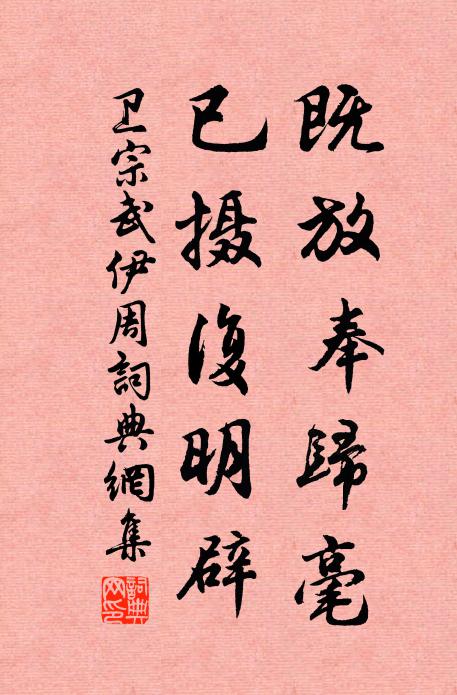 既放奉歸亳
已摄復明辟
卫宗武伊周詞典網集
詞典
网印